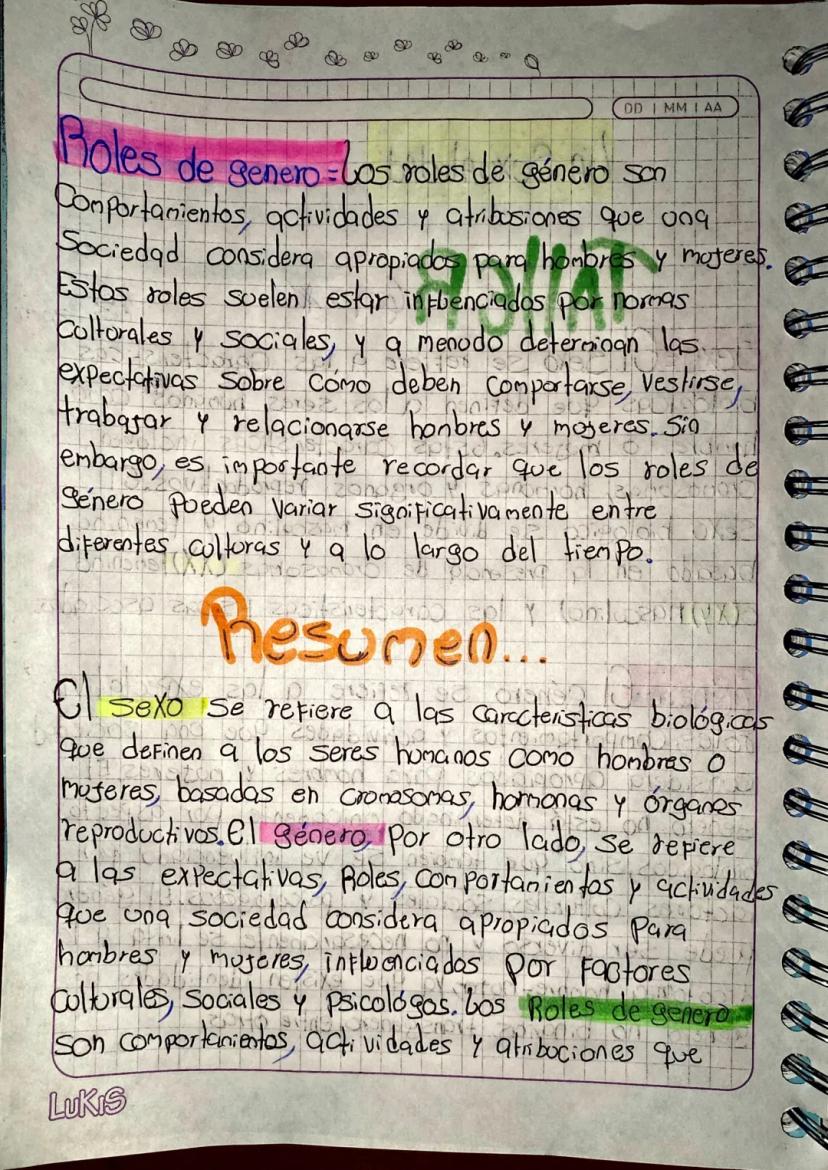 DD | MM | AA
Roles de genero = Los roles de género son
Comportamientos, actividades y atribusiones que una
Sociedad considera apropiados para hombres y mujeres.
Estos roles suelen estar influenciados por normas
culturales y sociales, y a menudo determinan las
expectativas sobre cómo deben comportarse, vestirse,
trabajar y relacionarse honbres y mujeres. Sin
embargo, es importante recordar que los roles de
género pueden variar significativamente entre
diferentes culturas y a lo largo del tiempo.
Resumen...
El sexo se refiere a las caracteristicas biológicas
que definen a los seres humanos como hombres o
mujeres, basadas en cromosomas, hormonas y órganos
reproductivos. El género, por otro lado, se refiere
a las expectativas, Roles, comportamientos y actividades
que una sociedad considera apropiados para
hombres y mujeres, influenciados por Factores
culturales, sociales y psicológos. Los Roles de genero
son comportamientos, actividades y atribuciones que
LUKIS